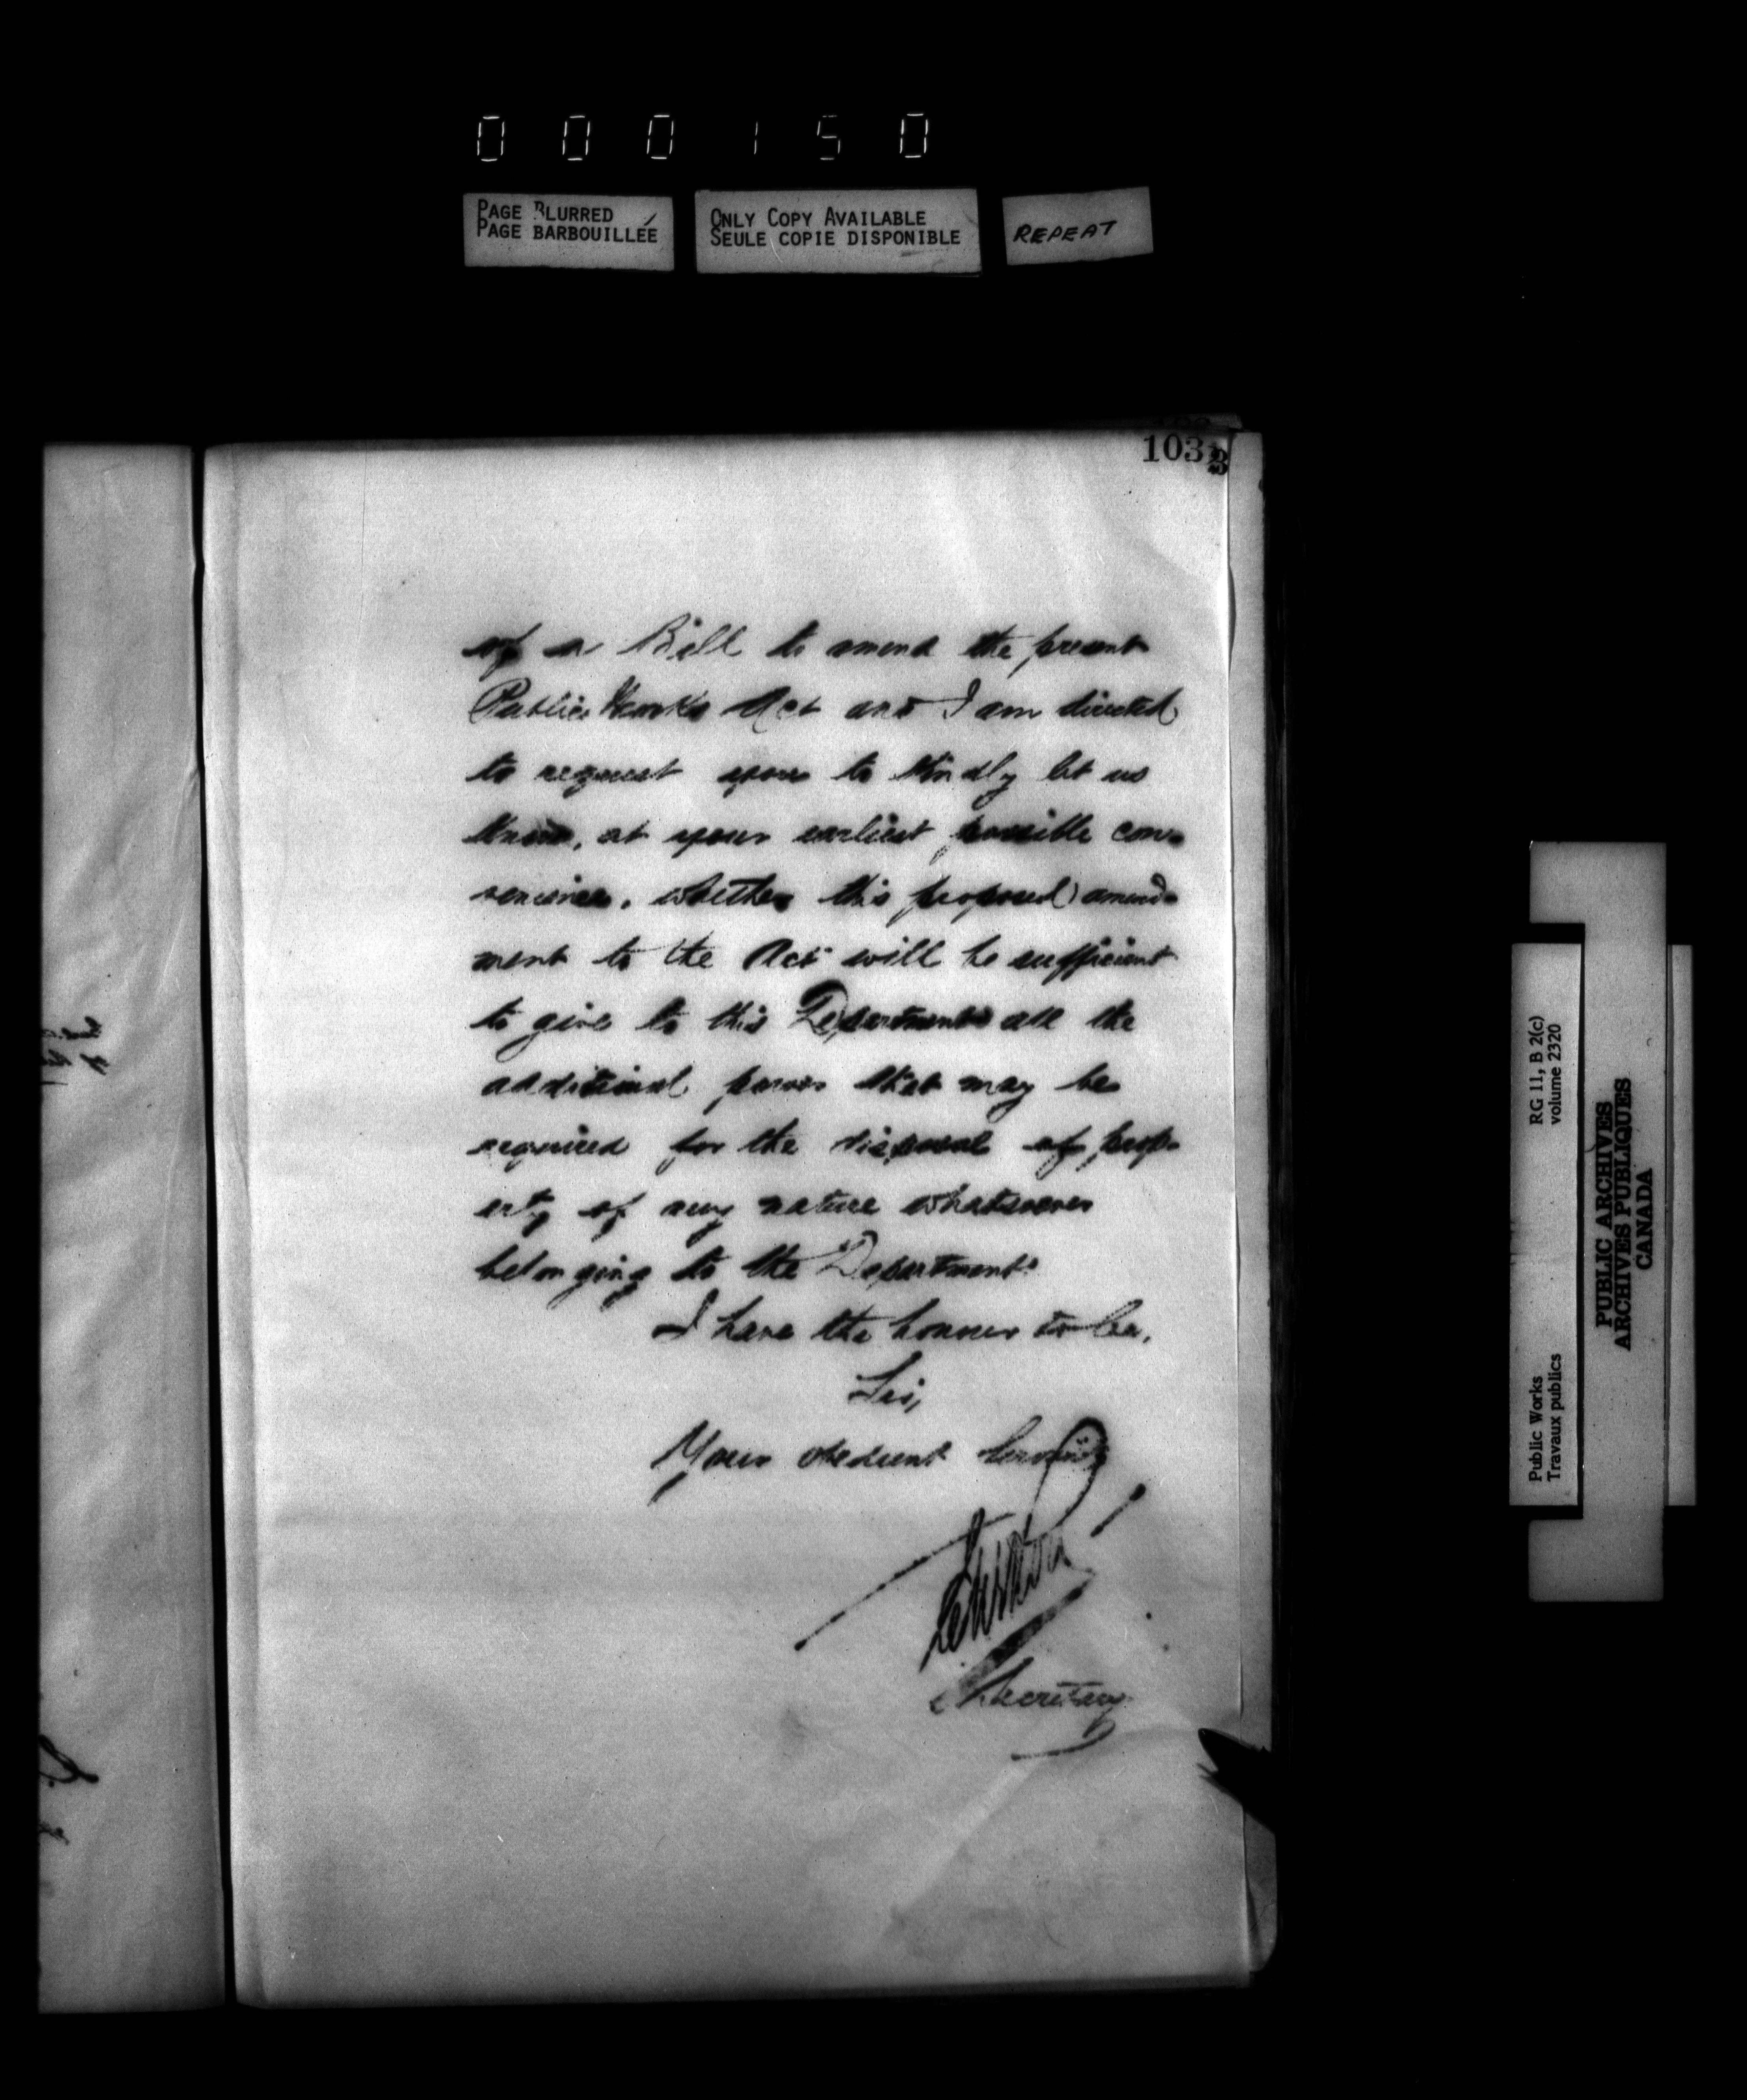 000150
PAGE BLURRED
PAGE BARBOUILLÉE
ONLY COPY AVAILABLE
SEULE COPIE DISPONIBLE
REPEAT
103
of a Bill to amend the present
Public Works Act and I am directed
to request you to kindly let us
know, at your earliest possible con-
venience, whether this proposed amend-
ment to the Act will be sufficient
to give to this Department all the
additional power that may be
required for the disposal of prop-
erty of any nature whatsoever
belonging to the Department.
I have the honour to be,
Sir,
Your obedient Servant
Secretary
Public Works
Travaux publics
RG 11, B 2(c)
volume 2320
PUBLIC ARCHIVES
ARCHIVES PUBLIQUES
CANADA